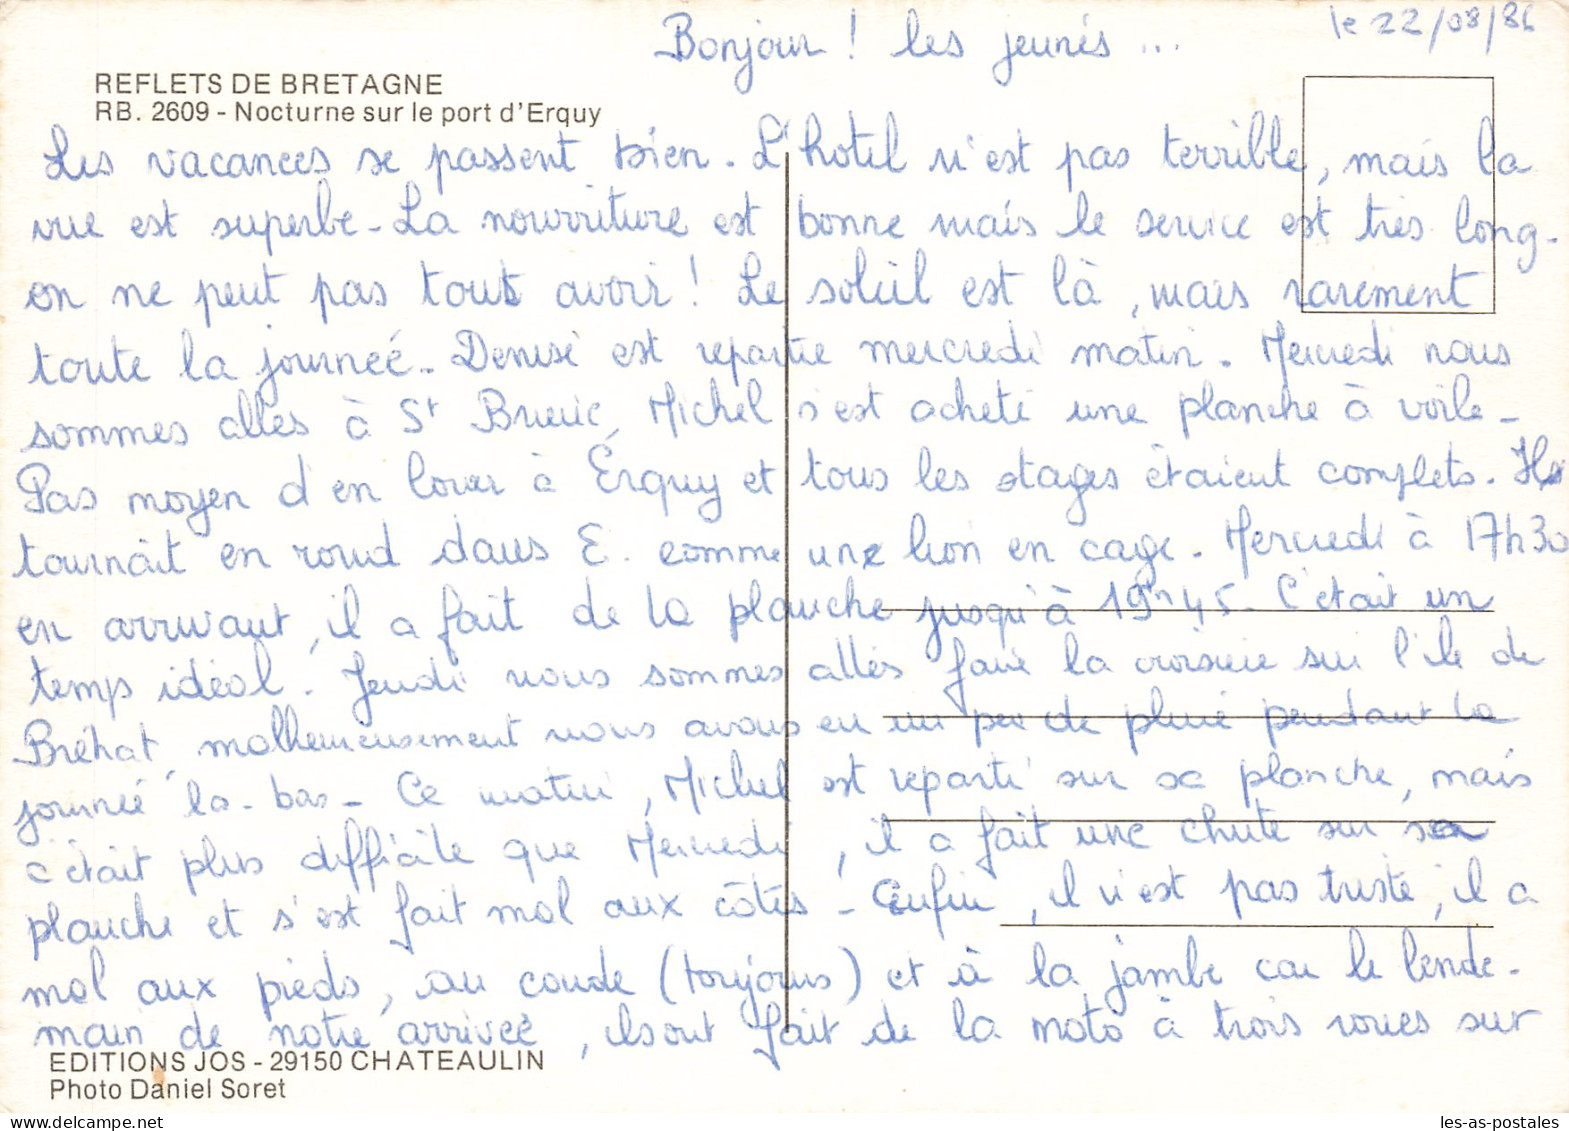 le 22/08/86
Bonjour ! les jeunés ...
REFLETS DE BRETAGNE
RB. 2609 - Nocturne sur le port d'Erquy
Les vacances se passent bien. L'hotel n'est pas terrible, mais la
vue est superbe. La nourriture est bonne mais le service est très long.
on ne peut pas tout avoir ! Le soleil est là, mais rarement
toute la journeé. Denise est repartie mercredi matin. Mercredi nous
sommes allés à St Brieuc, Michel s'est acheté une planche à voile.
Pas moyen d'en louer à Erquy et tous les stages étaient complets. Il
tournait en rond dans E. comme un lion en cage. Mercredi à 17h30
en arrivant, il a fait de la planche jusqu'à 19h45. C'était un
temps idéal. Jeudi nous sommes allés faire la croisière sur l'île de
Bréhat, malheureusement nous avons eu un peu de pluie pendant la
journeé là-bas. Ce matin, Michel est reparti sur sa planche, mais
c'était plus difficile que Mercredi, il a fait une chute sur sa
planche et s'est fait mal aux côtés. Enfin, il n'est pas triste, il a
mal aux pieds, au coude (toujours) et à la jambe car le lende-
main de notre arrivée, ils ont fait de la moto à trois roues sur
EDITIONS JOS - 29150 CHATEAULIN
Photo Daniel Soret
les-as-postales